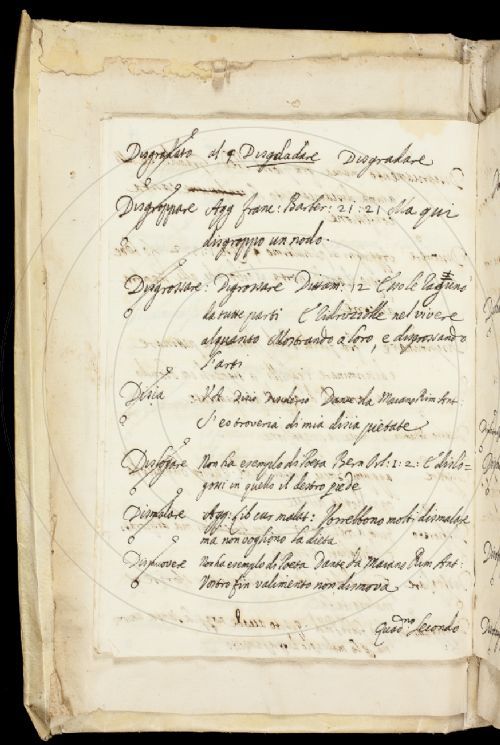 Disgradato al § Disgradare Disgradare
Disgroppare Agg franc: Barber: 21: 21 Ma qui
disgroppo un nodo.
Disgrossare: Digrossare Dittam: 12
da tutte parti nel vivere
alquanto Mostrando a loro, e disgrossando
l'arti
Disia : V.A. Disio Desiderio Dante da Maiano Rim Ant
S'eo troveria di mia disia pietate
Disfogare Non ha esemplo di Poeta Bern Orl: 1: 2:
in quello il destro piede
Dismalare Agg: Lib cur malat: Vorrebbono molti dismalare
ma non vogliono la dieta
Dismovere Non ha esemplo di Poeta Dante da Maiano Rim Ant:
Vostro fin valimento non dismova
Quad.no Secondo